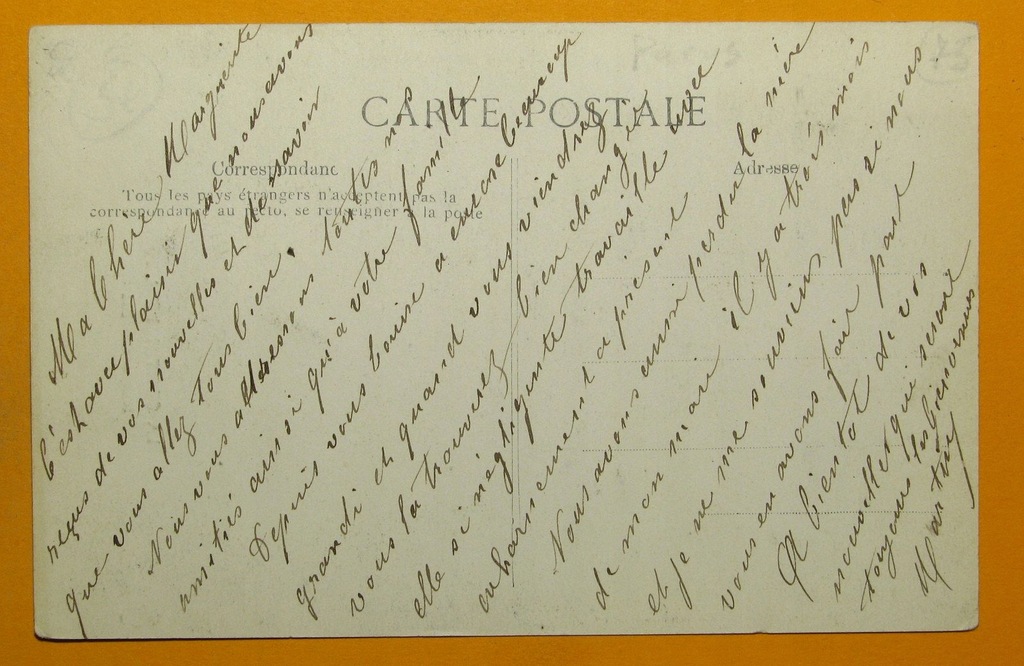 CARTE POSTALE
Correspondanc
Adresse
Tous les pays étrangers n'acceptent pas la
correspondance au recto, se renseigner à la poste
Ma Chère Marguerite
C'est avec plaisir que nous avons
reçus de vos nouvelles et de savoir
que vous allez tous bien.
Nous vous adressons tous nos
amitiés ainsi qu'à votre famille
Depuis vous Louise a encore beaucoup
grandi et quand vous viendrez
vous la trouverez bien changé
elle si négligente travaille avec
acharnement a présent
Nous avons aussi perdu la mère
de mon mari il y a trois mois
et je ne me souviens pas si nous
vous en avons fair part
A bientôt de vos
nouvelles qui seront
toujours les bienvenues